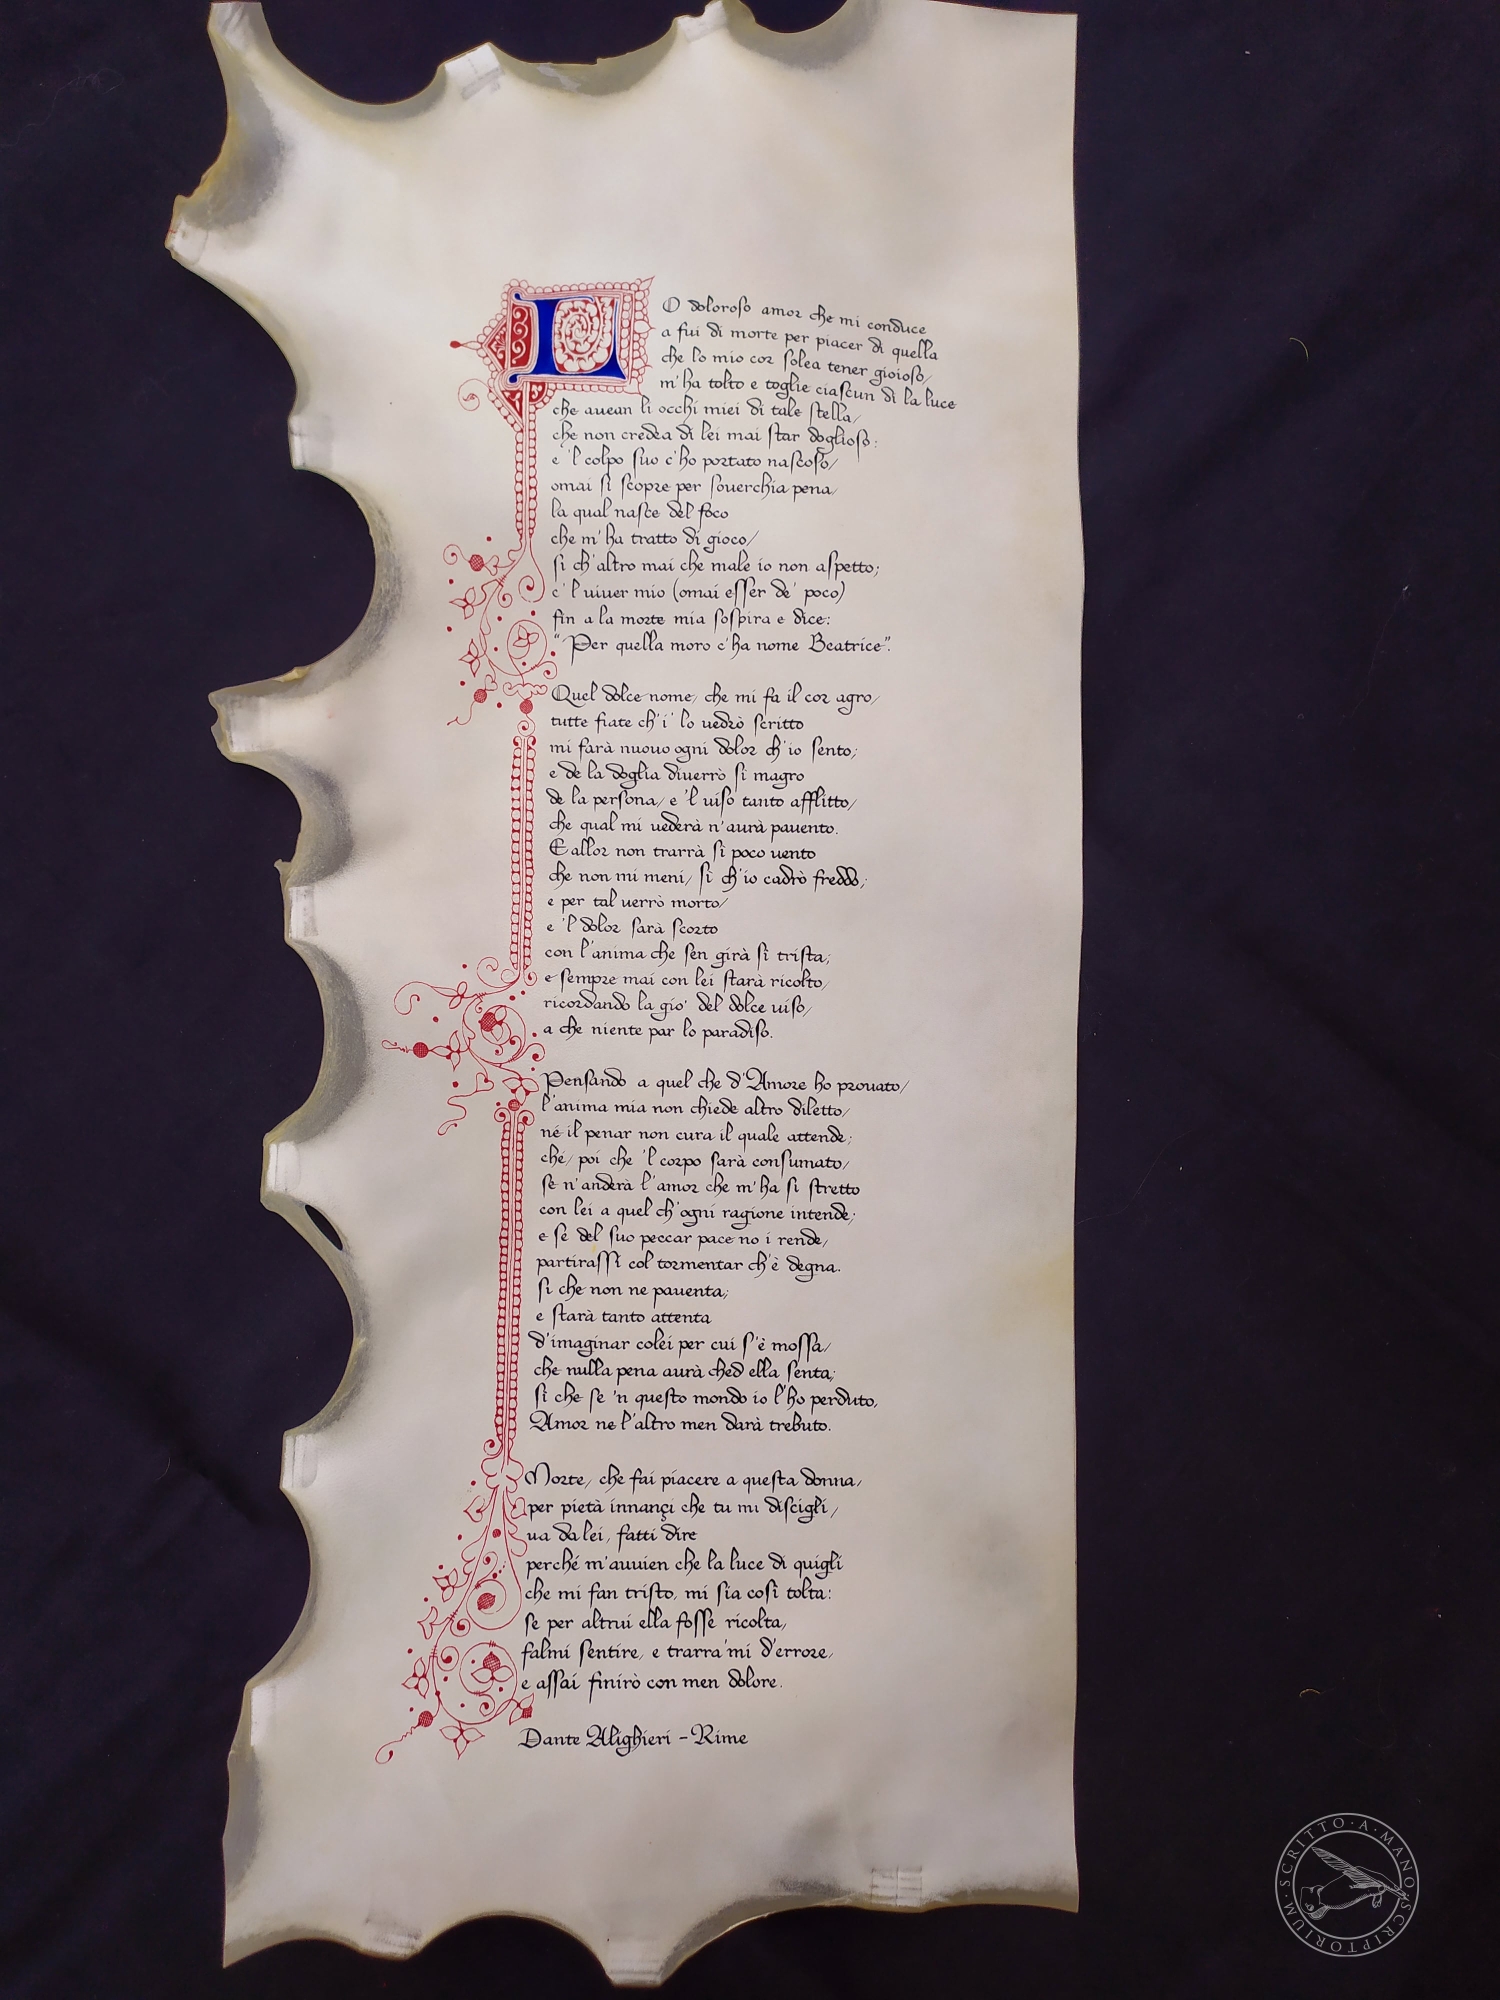 LO doloroso amor che mi conduce
a fui di morte per piacer di quella
che lo mio cor solea tener gioioso/
m'ha tolto e toglie ciascun di la luce
che auean li occhi miei di tale stella/
che non credea di lei mai star doglioso:
e 'l colpo suo c'ho portato nascoso/
omai si scopre per souerchia pena/
la qual nasce del foco
che m'ha tratto di gioco/
si ch'altro mai che male io non aspetto;
e 'l uiuer mio (omai esser de' poco)
fin a la morte mia sospira e dice:
"Per quella moro c'ha nome Beatrice".
Quel dolce nome, che mi fa il cor agro/
tutte fiate ch'i' lo uedrò scritto
mi farà nuouo ogni dolor ch'io sento;
e de la doglia diuerrò si magro
de la persona/ e 'l uiso tanto afflitto/
che qual mi uederà n'aurà pauento.
E allor non trarrà si poco uento
che non mi meni/ sì ch'io cadrò freddo;
e per tal uerrò morto/
e 'l dolor sarà scorto
con l'anima che sen girà sì trista;
e sempre mai con lei starà ricolto/
ricordando la gio' del dolce uiso/
a che niente par lo paradiso.
Pensando a quel che d'Amore ho prouato/
l'anima mia non chiede altro diletto/
né il penar non cura il quale attende;
ché/ poi che 'l corpo sarà consumato/
se n'anderà l'amor che m'ha si stretto
con lei a quel ch'ogni ragione intende;
e se del suo peccar pace no i rende/
partirassi col tormentar ch'è degna.
si che non ne pauenta;
e starà tanto attenta
d'imaginar colei per cui s'è mossa/
che nulla pena aurà ched ella senta;
si che se 'n questo mondo io l'ho perduto,
Amor ne l'altro men darà trebuto.
Morte/ che fai piacere a questa donna/
per pietà innançi che tu mi discigli/
ua da lei, fatti dire
perché m'auuien che la luce di quigli
che mi fan tristo, mi sia così tolta:
se per altrui ella fosse ricolta,
falmi sentire, e trarra'mi d'errore,
e assai finirò con men dolore.
Dante Alighieri - Rime
SCRITTO · A · MANO · SCRIPTORIUM ·